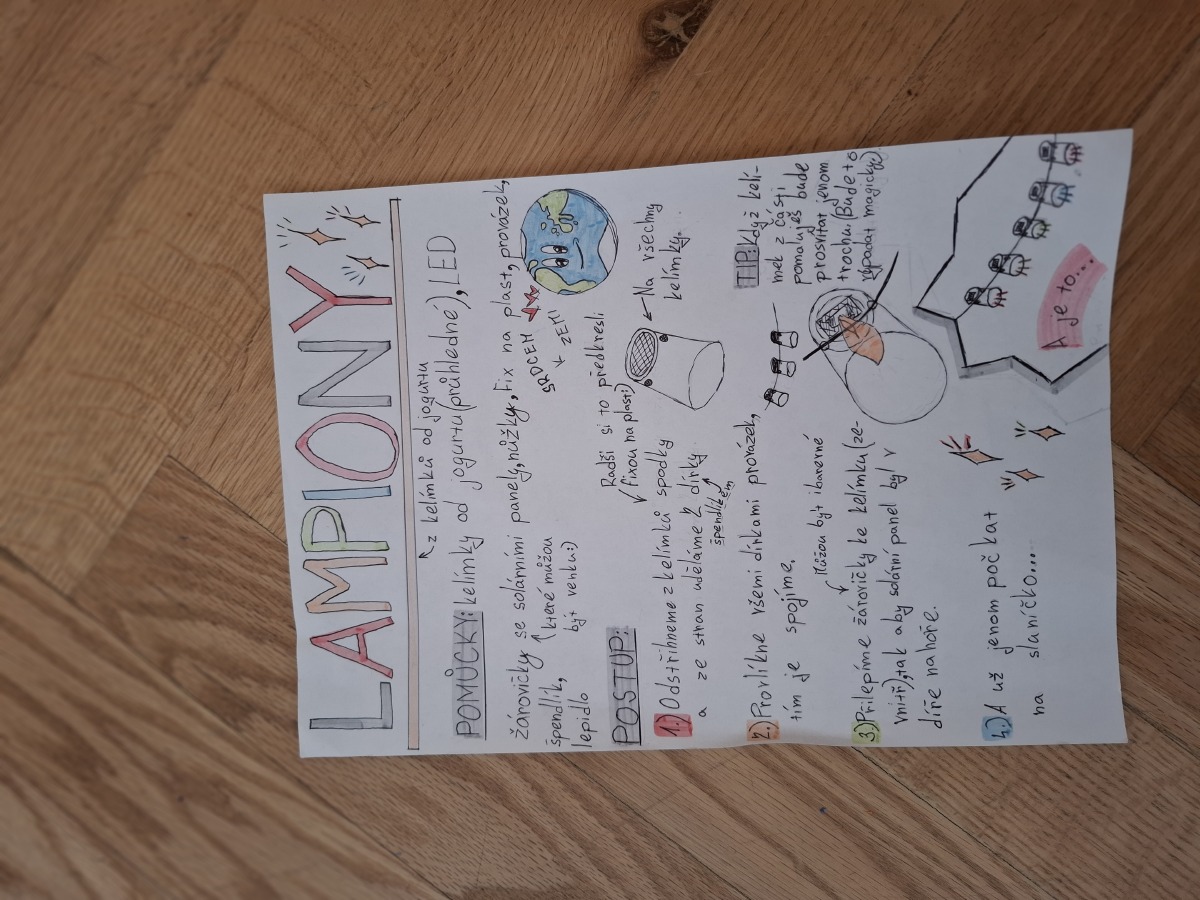 LAMPIONY
z kelímků od jogurtu
POMŮCKY: kelímky od jogurtu (průhledné), LED
žárovičky se solárními panely, nůžky, fix na plast, provázek,
špendlík,
lepidlo
které můžou
být venku:)
SRDCEM
k
ZEMI
POSTUP:
Radši si to předkresli
fixou na plasti)
Na všechny
kelímky.
1.) Odstřihneme z kelímků spodky
a ze stran uděláme 2 dírky
špendlíkem
2.) Provlíkne všemi dírkami provázek,
tím je spojíme.
Můžou být i barevné
3.) Přilepíme žárovičky ke kelímku (ze-
vnitř), tak aby solární panel byl v
díře nahoře.
TIP: Když kelí-
mek z části
pomaluješ bude
prosvítat jenom
trochu. (Bude to
vypadat magicky.)
4.) A už jenom počkat
na sluníčko...
A je to...